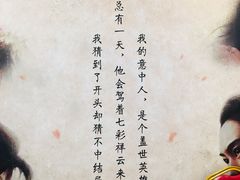 我的意中人，是个盖世英雄
总有一天，他会驾着七彩祥云来
我猜到了开头却猜不中结局